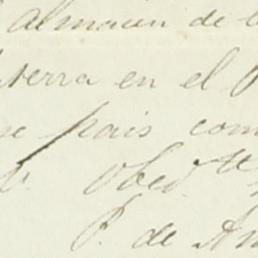 almacen de
terra en el
se pais com
Obed. te
P. de An